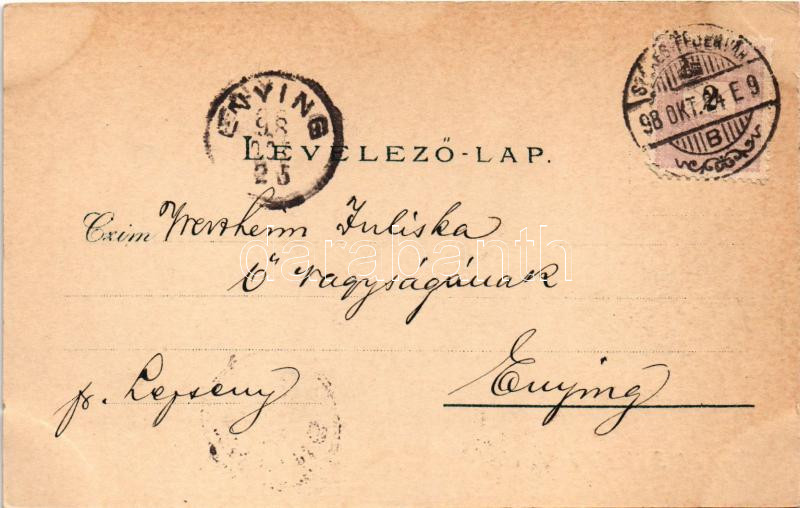 SZÉKESFEJÉRVÁR
98 OKT. 24 E 9
B
2
ENYING
98
OKT
25
LEVELEZŐ-LAP.
Czim Wertheim Juliska
Ő Nagyságának
darabanth
fr. Lepsény Enying